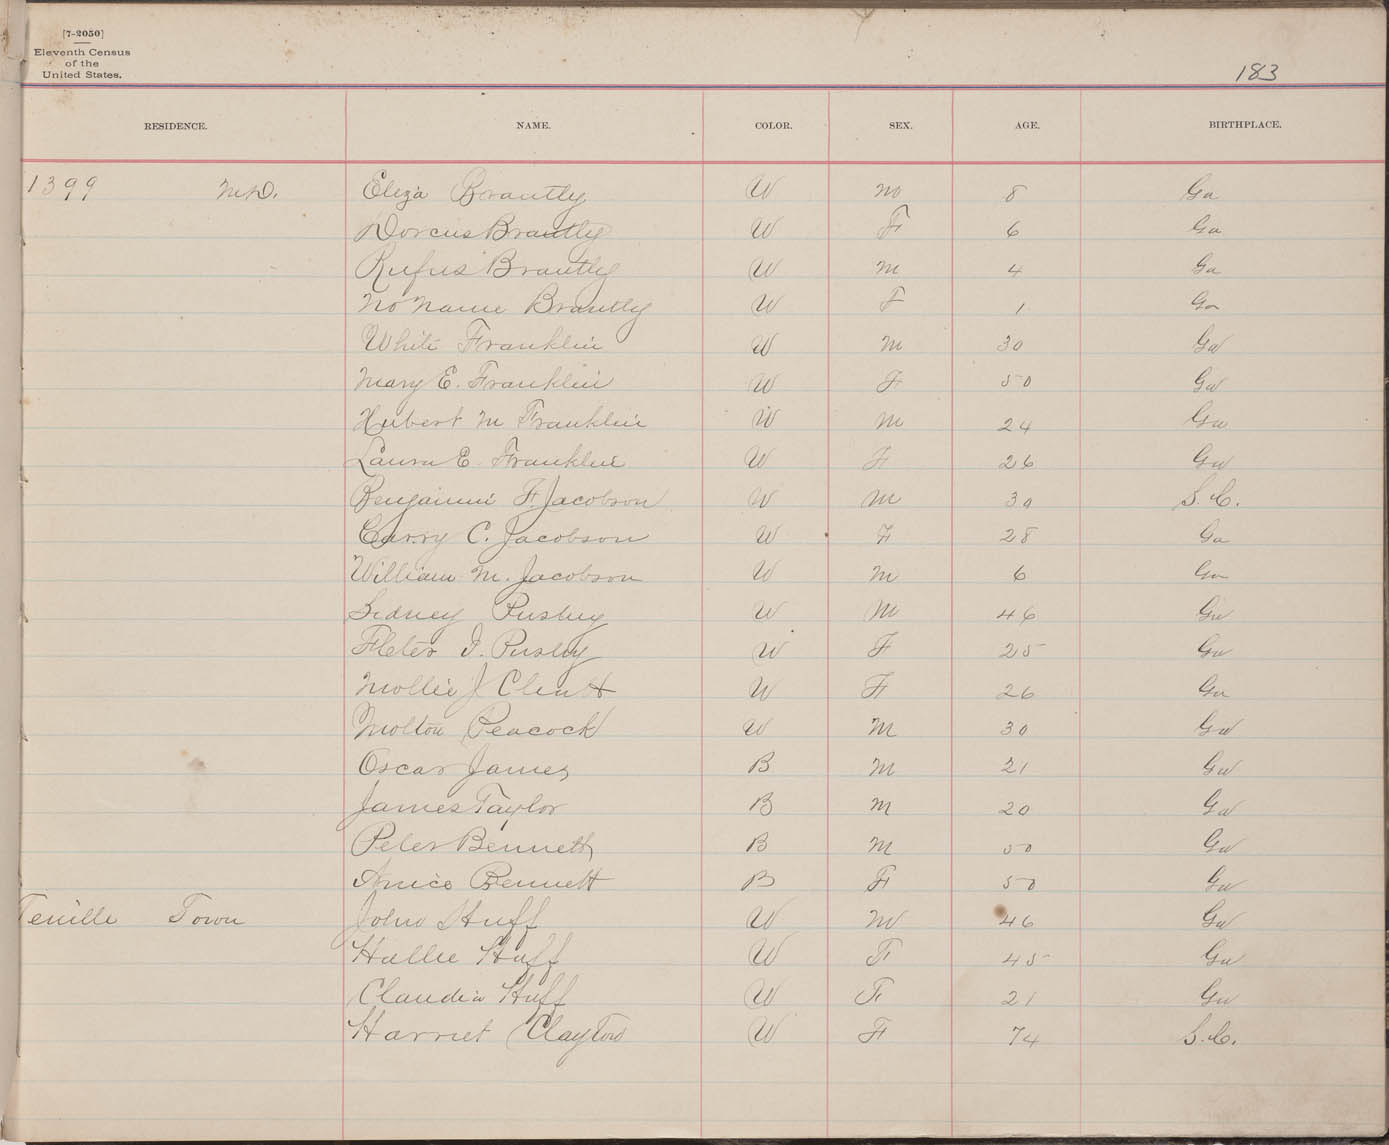 [7-2050]
Eleventh Census
of the
United States.
183
RESIDENCE. NAME. COLOR. SEX. AGE. BIRTHPLACE.
1399 M.D. Eliza Brantly W M 8 Ga
Dorcus Brantly W F 6 Ga
Rufus Brantly W M 4 Ga
No Name Brantly W F 1 Ga
White Franklin W M 30 Ga
Mary E. Franklin W F 50 Ga
Hubert M Franklin W M 24 Ga
Laura E. Franklin W F 26 Ga
Benjamin F. Jacobson W M 30 S.C.
Carry C. Jacobson W F 28 Ga
William M. Jacobson W M 6 Ga
Sidney Pusley W M 46 Ga
I. Pusley W F 25 Ga
Mollie J W F 26 Ga
Molton Peacock W M 30 Ga
Oscar James B M 21 Ga
James Taylor B M 20 Ga
Peter Bennett B M 50 Ga
Bennett B F 50 Ga
Tenille Town John Huff W M 46 Ga
Hallie Huff W F 45 Ga
Claudia Huff W F 21 Ga
Harriet Clayton W F 74 S.C.